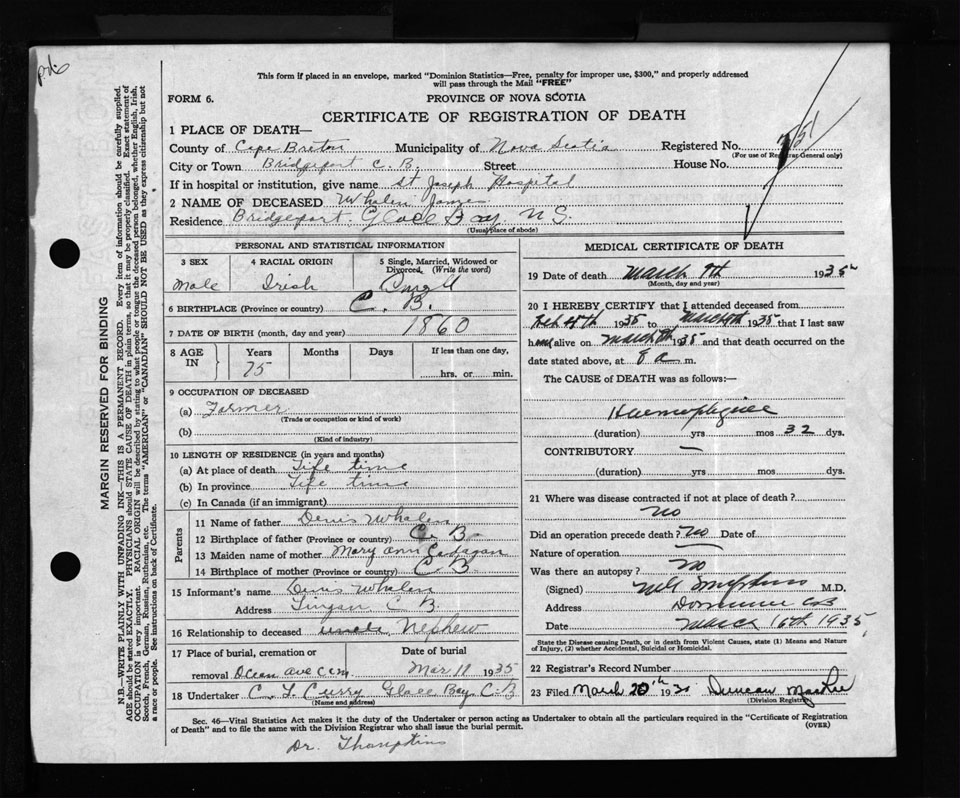 This form if placed in an envelope, marked "Dominion Statistics—Free, penalty for improper use, $300," and properly addressed
will pass through the Mail "FREE"
FORM 6.
PROVINCE OF NOVA SCOTIA
CERTIFICATE OF REGISTRATION OF DEATH
1 PLACE OF DEATH—
County of Cape Breton Municipality of Nova Scotia Registered No.
(For use of Registrar General only)
City or Town Bridgeport C. B. Street House No.
If in hospital or institution, give name St Joseph Hospital
2 NAME OF DECEASED Whalen James
Residence Bridgeport. Glace Bay. N S.
(Usual place of abode)
PERSONAL AND STATISTICAL INFORMATION
3 SEX
Male
4 RACIAL ORIGIN
Irish
5 Single, Married, Widowed or
Divorced, (Write the word)
6 BIRTHPLACE (Province or country) C. B.
7 DATE OF BIRTH (month, day and year) 1860
8 AGE IN
Years Months Days If less than one day,
75 hrs. or min.
9 OCCUPATION OF DECEASED
(a) Farmer
(Trade or occupation or kind of work)
(b)
(Kind of industry)
10 LENGTH OF RESIDENCE (in years and months)
(a) At place of death Life time
(b) In province Life time
(c) In Canada (if an immigrant)
Parents
11 Name of father Denis Whalen
12 Birthplace of father (Province or country) C. B.
13 Maiden name of mother Mary Ann
14 Birthplace of mother (Province or country) C B
15 Informant's name Denis Whalen
Address Lingan C B.
16 Relationship to deceased uncle Nephew
17 Place of burial, cremation or Date of burial
removal Ocean ave cem Mar 11 1935
18 Undertaker C. T Curry Glace Bay C. B
(Name and address)
MEDICAL CERTIFICATE OF DEATH
19 Date of death March 9th 1935
(Month, day and year)
20 I HEREBY CERTIFY that I attended deceased from
Feb 1935 to March 9th 1935 that I last saw
him alive on March 1935 and that death occurred on the
date stated above, at 8 a m.
The CAUSE of DEATH was as follows:—
(duration) yrs mos 32 dys.
CONTRIBUTORY —
(duration) yrs mos dys.
21 Where was disease contracted if not at place of death?
no
Did an operation precede death? no Date of
Nature of operation
Was there an autopsy? no
(Signed) M.D.
Address Dominion CB
Date March 16th 1935
State the Disease causing Death, or in death from Violent Causes, state (1) Means and Nature
of Injury, (2) whether Accidental, Suicidal or Homicidal.
22 Registrar's Record Number
23 Filed March 20th 193 Duncan
(Division Registrar)
Sec. 46—Vital Statistics Act makes it the duty of the Undertaker or person acting as Undertaker to obtain all the particulars required in the "Certificate of Registration
of Death" and to file the same with the Division Registrar who shall issue the burial permit.
(OVER)
Dr. Thompkins
MARGIN RESERVED FOR BINDING
N.B.—WRITE PLAINLY WITH UNFADING INK—THIS IS A PERMANENT RECORD. Every item of information should be carefully supplied.
AGE should be stated EXACTLY. PHYSICIANS should STATE CAUSE OF DEATH in plain terms, so that it may be properly classified. Exact statement of
OCCUPATION is very important. RACIAL ORIGIN will be described by stating to what people or tongue the deceased person belonged, whether English, Irish,
Scotch, French, German, Russian, Ruthenian, etc. The terms "AMERICAN" or "CANADIAN" SHOULD NOT BE USED as they express citizenship but not
a race or people. See instructions on back of Certificate.